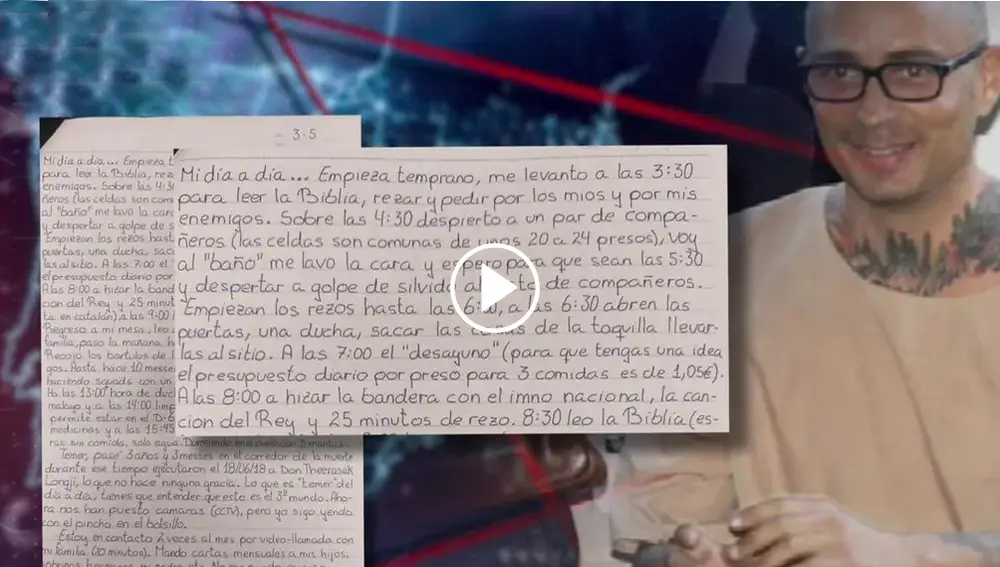 3-5
Mi día a día... Empieza t
para leer la Biblia, rez
enemigos. Sobre las 4:3
ñeros (las celdas son com
al "baño" me lavo la car
y despertar a golpe de s
Empiezan los rezos hast
puertas, una ducha, sac
las al sitio. A las 7:00 el
el presupuesto diario por
A las 8:00 a hizar la band
cion del Rey y 25 minut
ta en catalán) a las 9:00
Regreso a mi mesa, leo
familia, paso la mañana h
Recojo los bartulos de
gos. Hasta hace 10 mese
haciendo squads con un
Ha las 13:00 hora de duc
malayo y a las 14:00 limp
permite estar en el D-6
medicinas y a las 15:45
ras sin comida, solo agua. Durmiendo en el suelo con 3 mantas.
Temer, pase 3 años y 3 meses en el corredor de la muerte
durante ese tiempo ejecutaron el 18/06/18 a Don Theerasak
Longji, lo que no hace ninguna gracia. Lo que es "temer" del
día a día, tienes que entender que esto es el 3º mundo. Aho-
ra nos han puesto camaras (CCTV), pero ya sigo yendo
con el pincho en el bolsillo.
Estoy en contacto 2 veces al mes por video-llamada con
mi familia. (20 minutos). Mando cartas mensuales a mis hijos,
Mi día a día... Empieza temprano, me levanto a las 3:30
para leer la Biblia, rezar y pedir por los mios y por mis
enemigos. Sobre las 4:30 despierto a un par de compa-
ñeros (las celdas son comunas de unos 20 a 24 presos), voy
al "baño" me lavo la cara y espero para que sean las 5:30
y despertar a golpe de silvido al de compañeros.
Empiezan los rezos hasta las a las 6:30 abren las
puertas, una ducha, sacar las de la toquilla llevar-
las al sitio. A las 7:00 el "desayuno" (para que tengas una idea
el presupuesto diario por preso para 3 comidas es de 1,05€).
A las 8:00 a hizar la bandera con el imno nacional, la can-
cion del Rey y 25 minutos de rezo. 8:30 leo la Biblia (es-